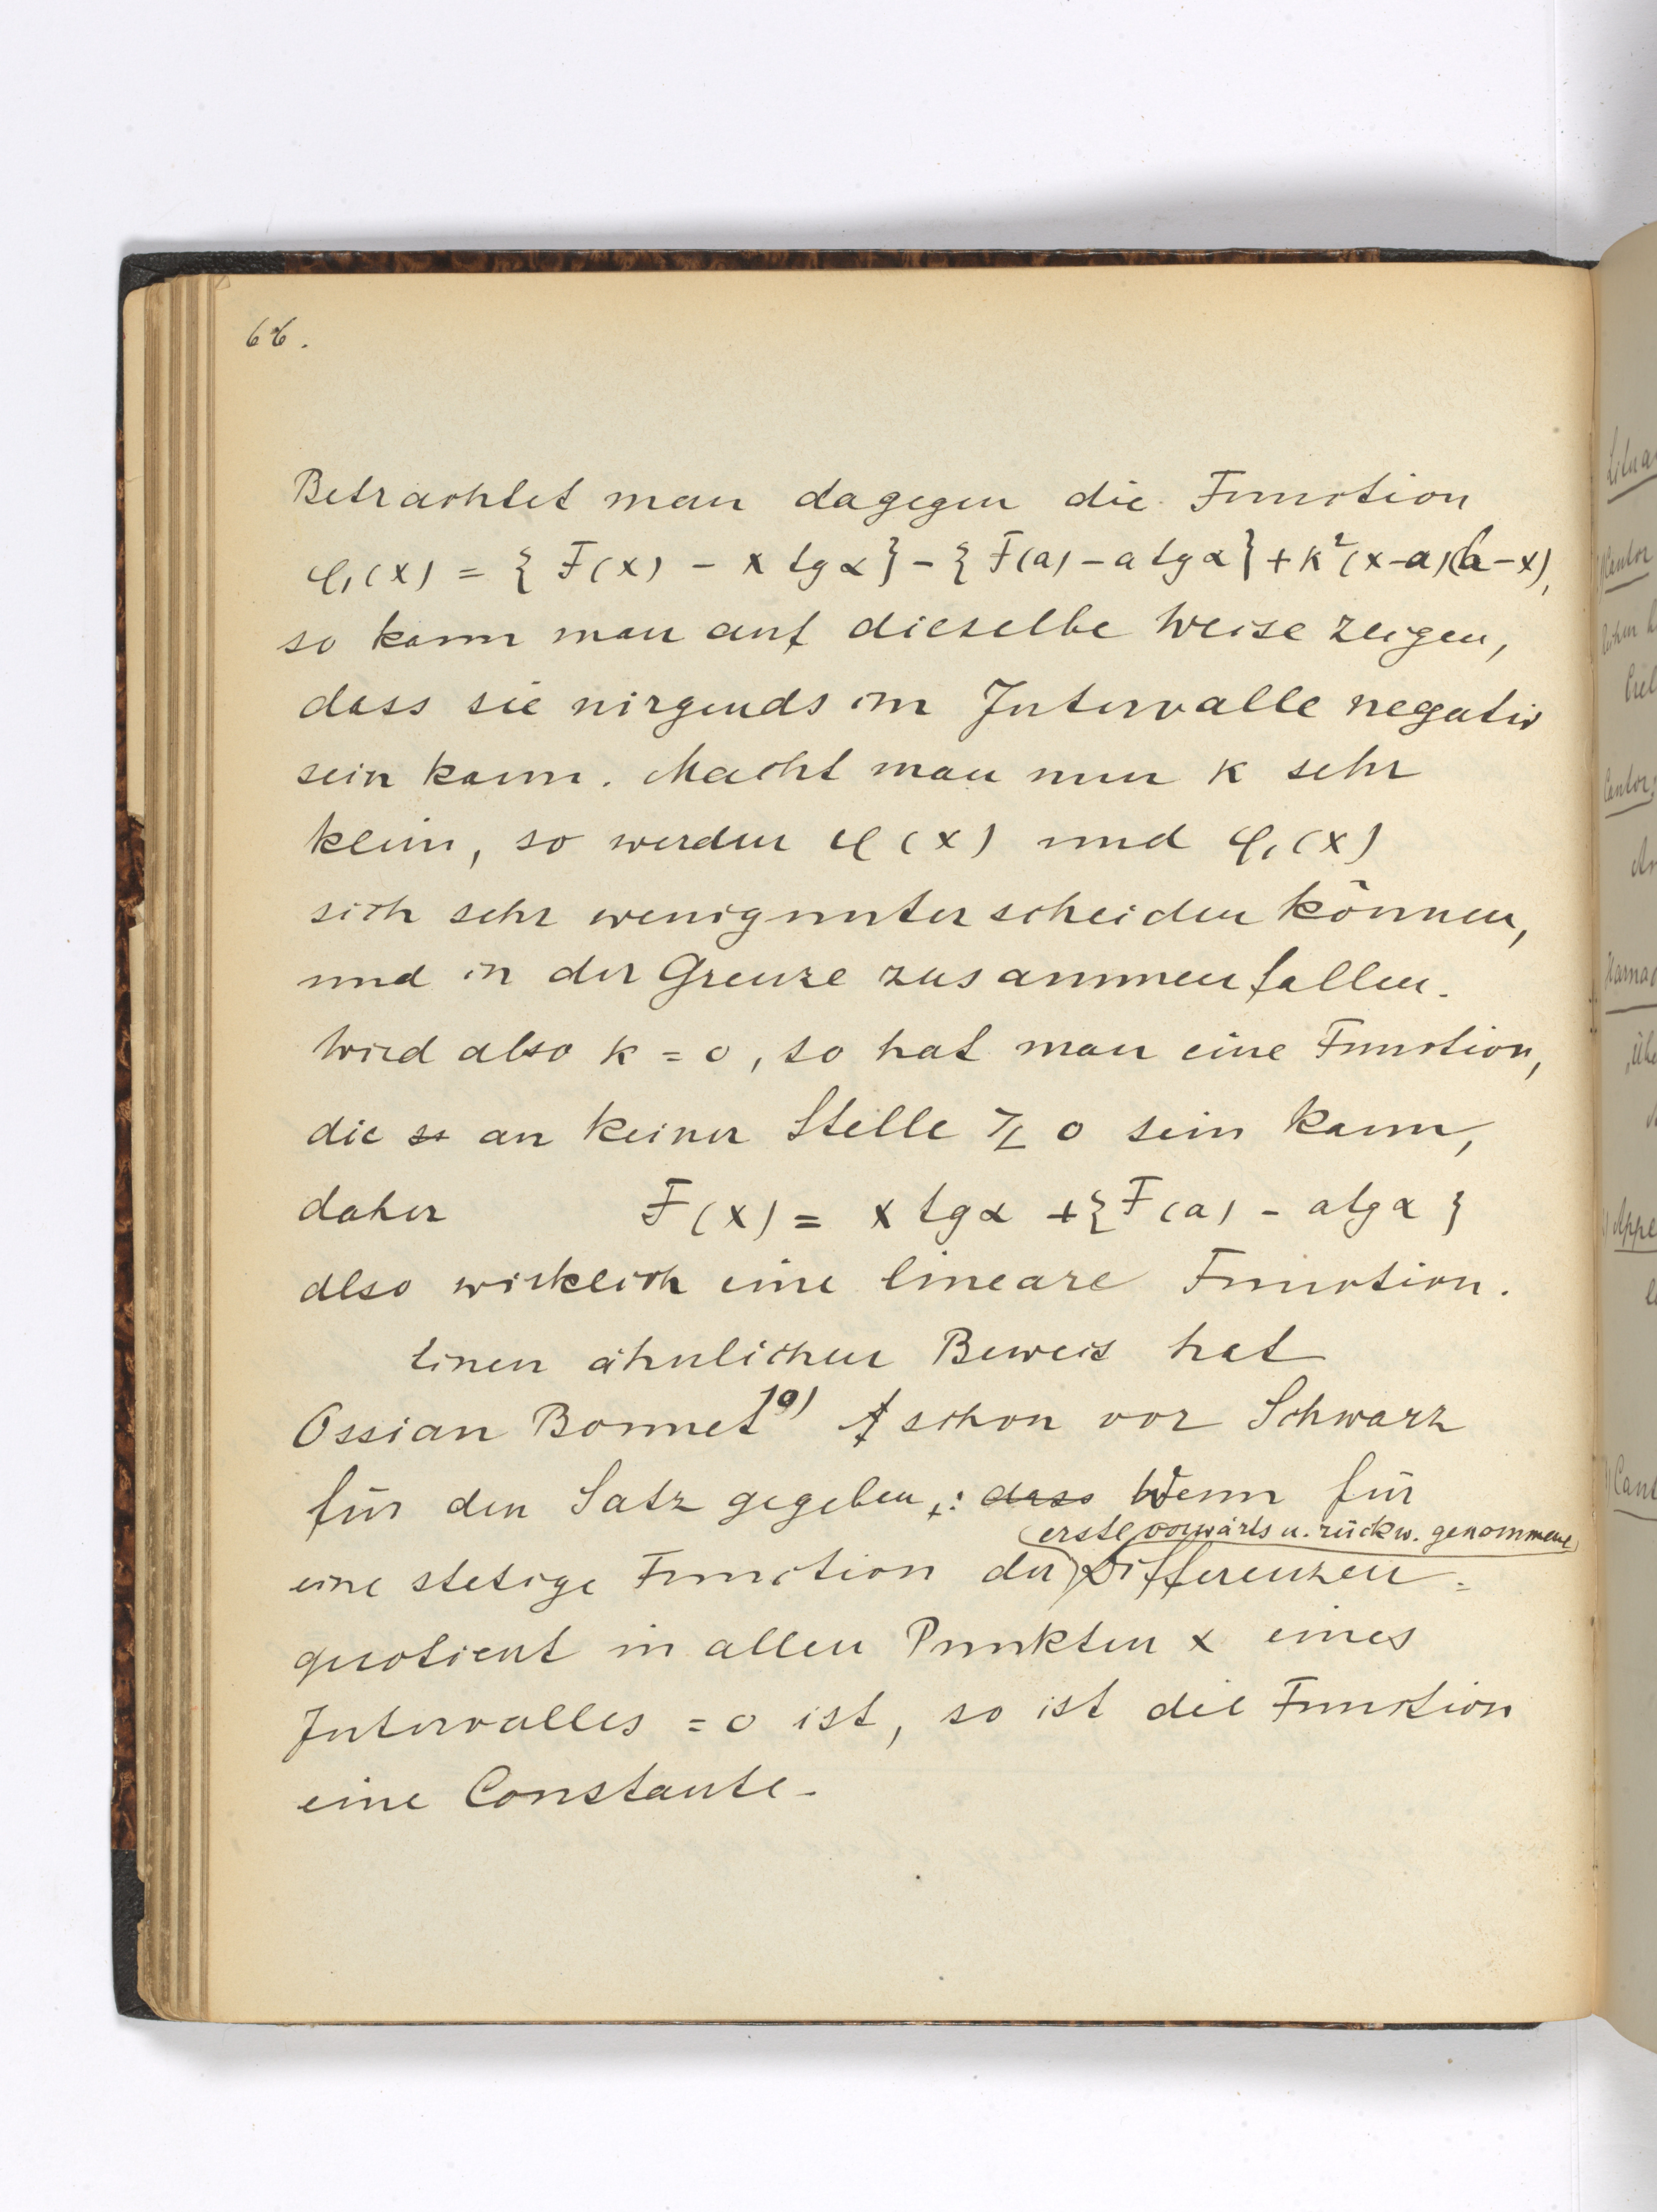 66.
Betrachtet man dagegen die Function
φ₁(x) = { F(x) - x tg α } - { F(a) - a tg α } + k²(x-a)(b-x),
so kann man auf dieselbe Weise zeigen,
dass sie nirgends im Intervalle negativ
sein kann. Macht man nun k sehr
klein, so werden φ(x) und φ₁(x)
sich sehr wenig unterscheiden können,
und in der Grenze zusammenfallen.
Wird also k = 0, so hat man eine Function,
die an keiner Stelle ≷ 0 sein kann,
daher F(x) = x tg α + { F(a) - a tg α }
also wirklich eine lineare Function.
Einen ähnlichen Beweis hat
Ossian Bonnet schon vor Schwarz
für den Satz gegeben: dass Wenn für
erste vorwärts u. rückw. genommene
eine stetige Function der Differenzen=
quotient in allen Punkten x eines
Intervalles = 0 ist, so ist die Function
eine Constante.
Cantor
Cantor,